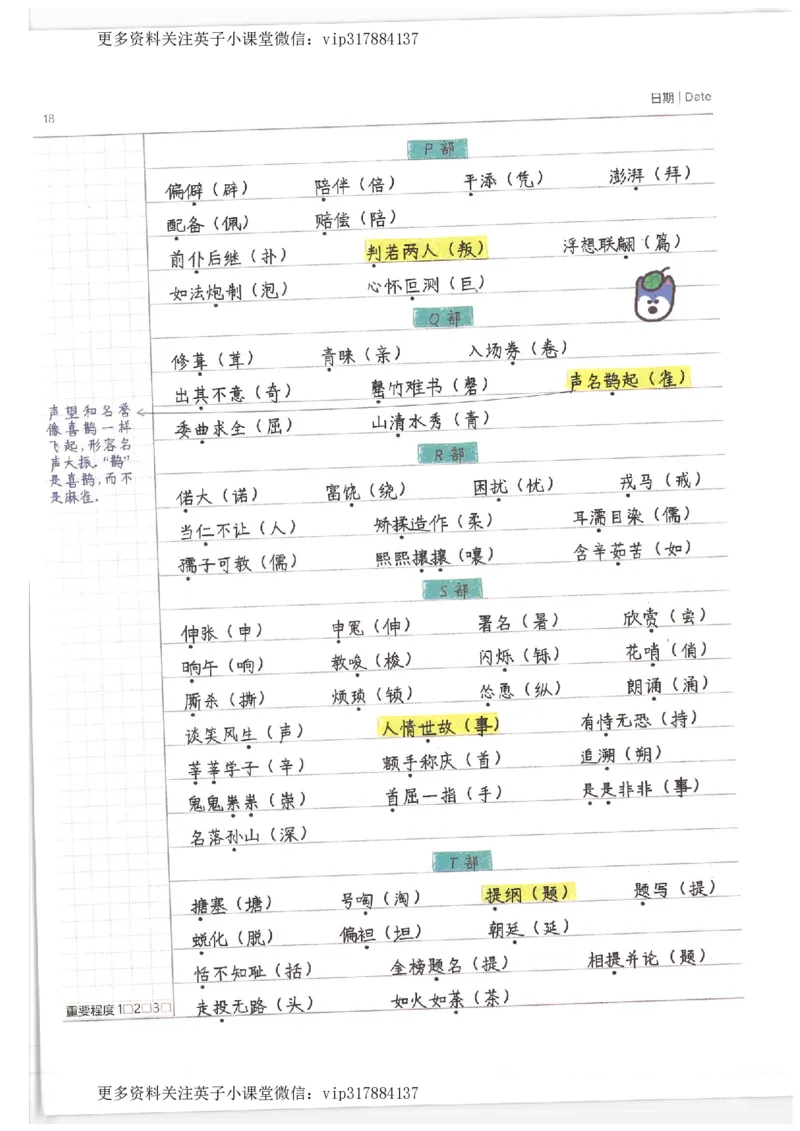 更多资料关注英子小课堂微信：vip317884137
日期 | Date
18
P 部
偏僻（辟） 陪伴（倍） 平添（凭） 澎湃（拜）
配备（佩） 赔偿（陪）
前仆后继（扑） 判若两人（叛） 浮想联翩（篇）
如法炮制（泡） 心怀叵测（巨）
Q 部
修葺（茸） 青睐（亲） 入场券（卷）
出其不意（奇） 罄竹难书（磬） 声名鹊起（雀）
委曲求全（屈） 山清水秀（青）
声望和名誉
像喜鹊一样
飞起，形容名
声大振。“鹊”
是喜鹊，而不
是麻雀。
R 部
偌大（诺） 富饶（绕） 困扰（忧） 戎马（戒）
当仁不让（人） 矫揉造作（柔） 耳濡目染（儒）
孺子可教（儒） 熙熙攘攘（嚷） 含辛茹苦（如）
S 部
伸张（申） 申冤（伸） 署名（暑） 欣赏（尝）
晌午（响） 教唆（梭） 闪烁（铄） 花哨（俏）
厮杀（撕） 烦琐（锁） 怂恿（纵） 朗诵（涌）
谈笑风生（声） 人情世故（事） 有恃无恐（持）
莘莘学子（辛） 额手称庆（首） 追溯（朔）
鬼鬼祟祟（崇） 首屈一指（手） 是是非非（事）
名落孙山（深）
T 部
搪塞（塘） 号啕（淘） 提纲（题） 题写（提）
蜕化（脱） 偏袒（坦） 朝廷（延）
恬不知耻（括） 金榜题名（提） 相提并论（题）
走投无路（头） 如火如荼（茶）
重要程度 1□2□3□
更多资料关注英子小课堂微信：vip317884137